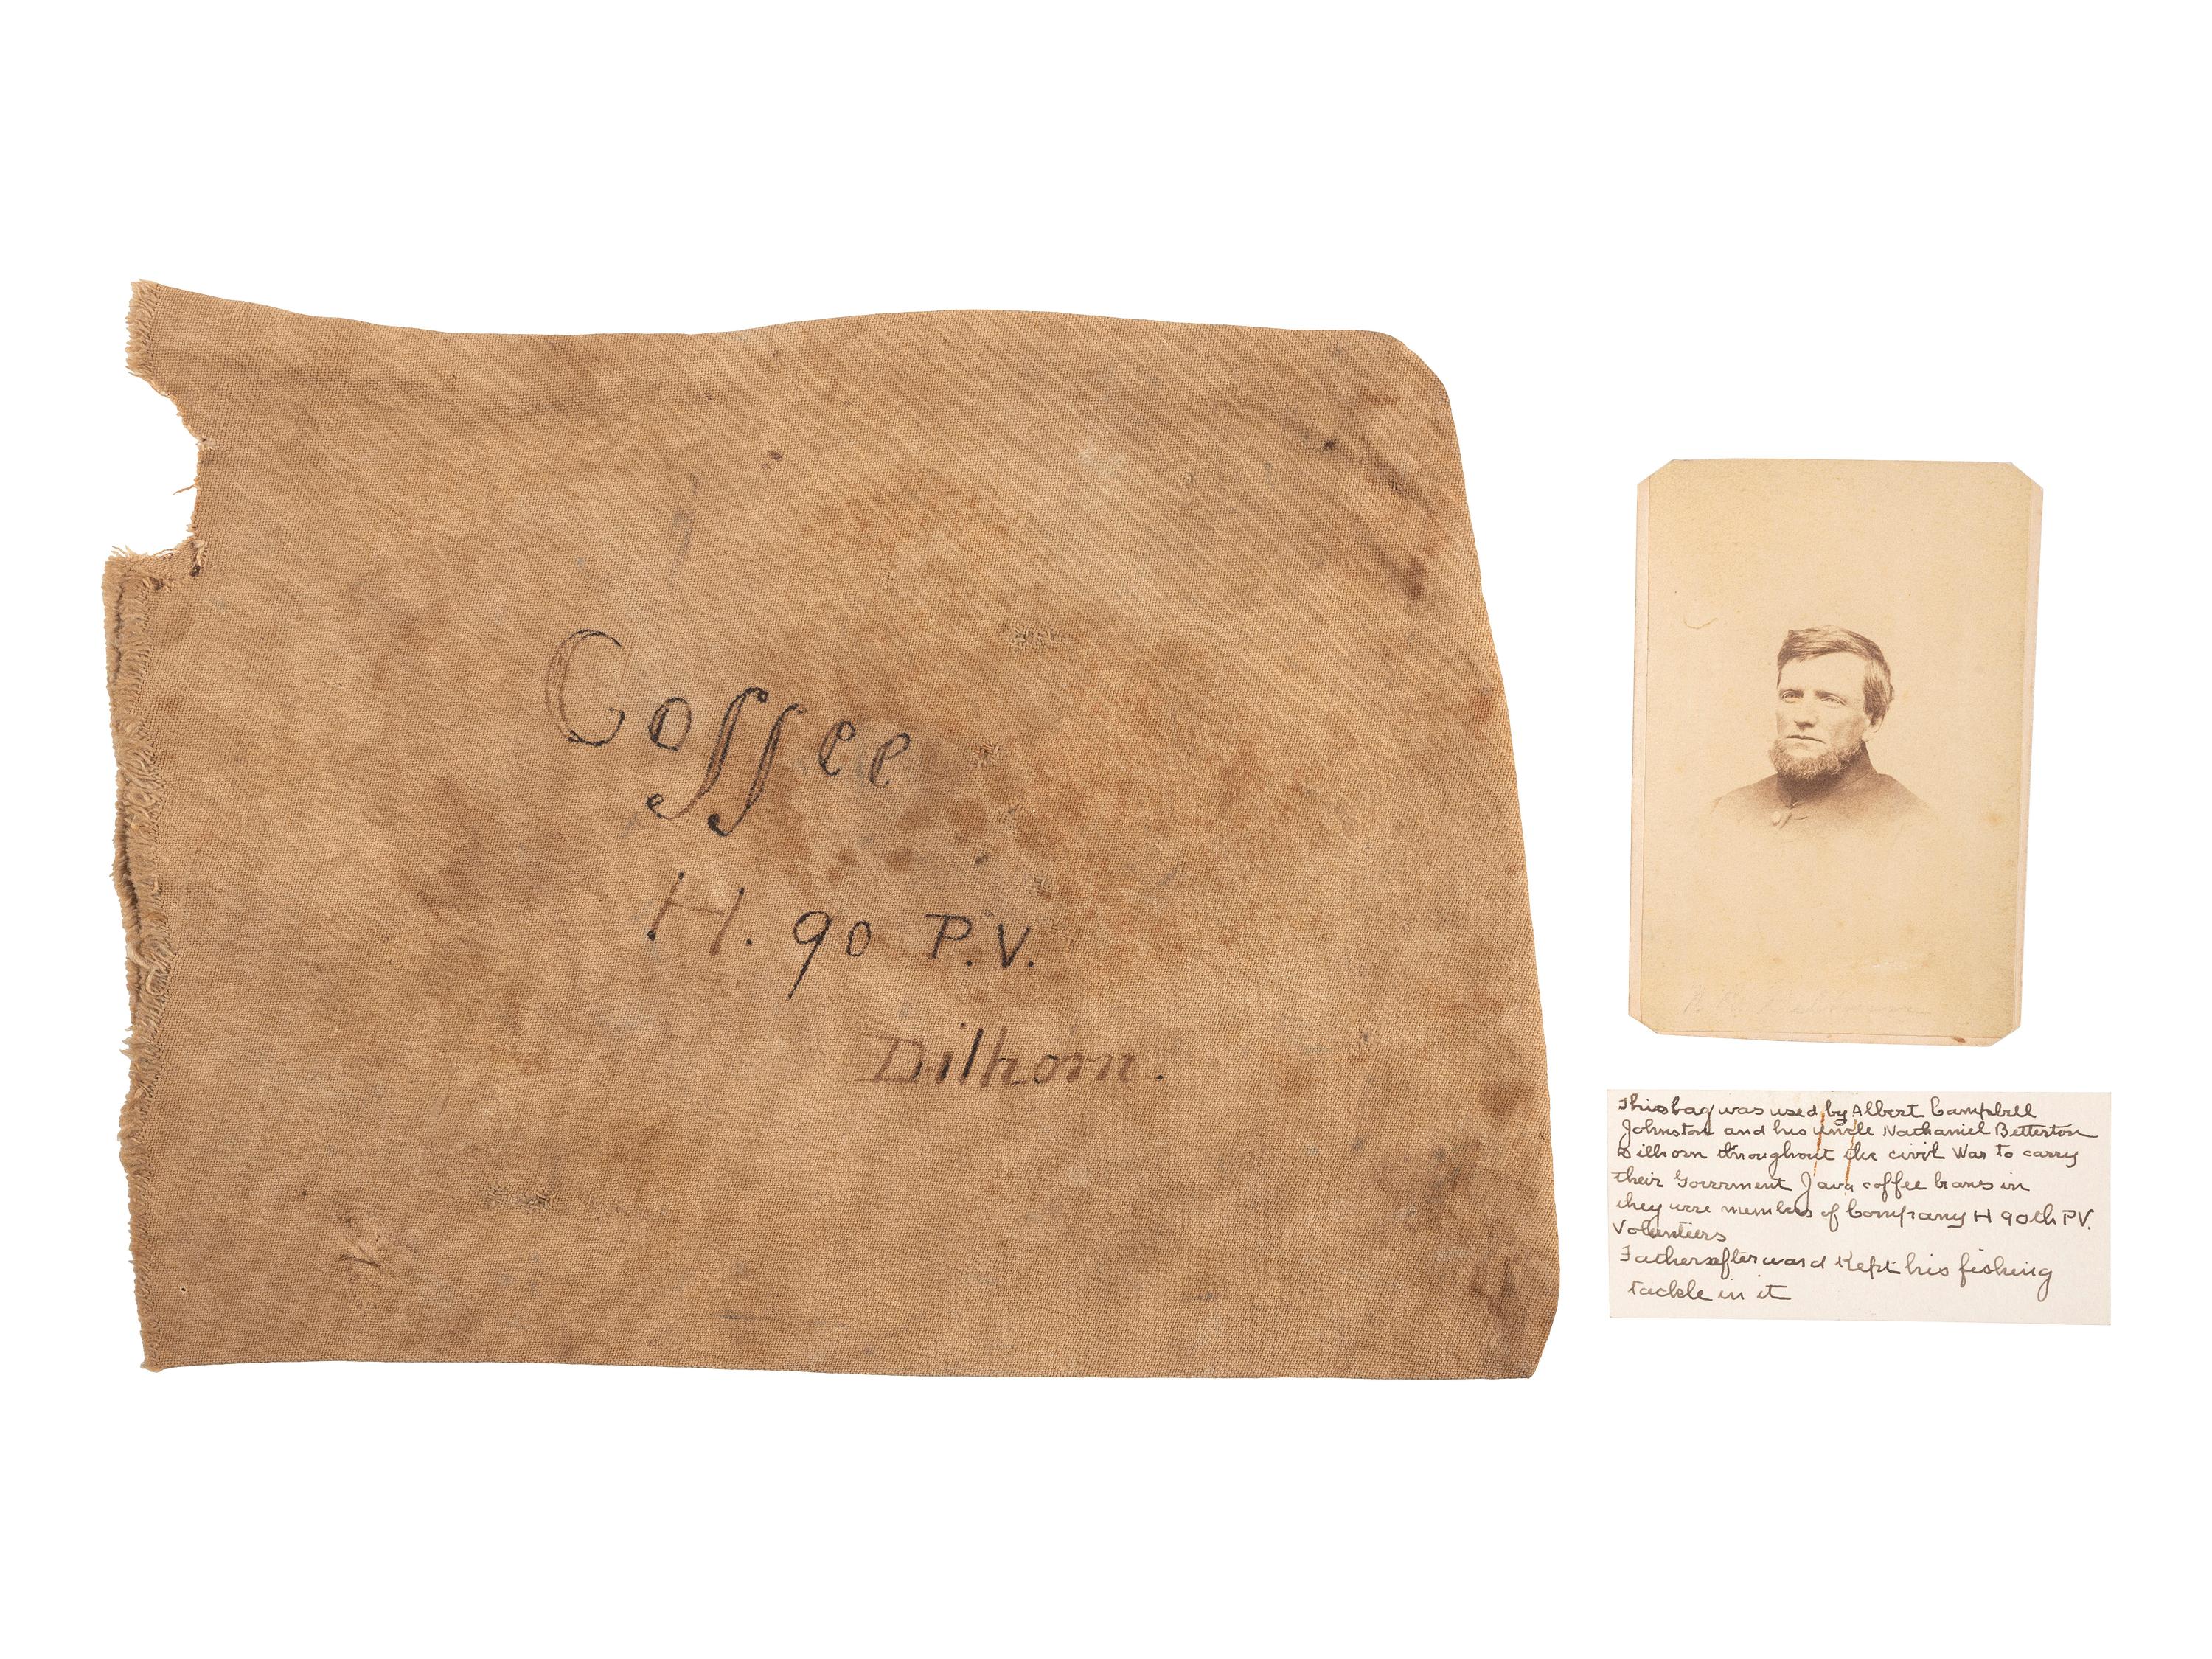 Coffee
H. 90 P.V.
Dilhorn.
This bag was used by Albert Campbell
Johnston and his uncle Nathaniel Betterton
Dilhorn throughout the civil War to carry
their Goverment Java coffee beans in
they were members of Company H 90th P.V.
Volunteers
Father afterward Kept his fishing
tackle in it